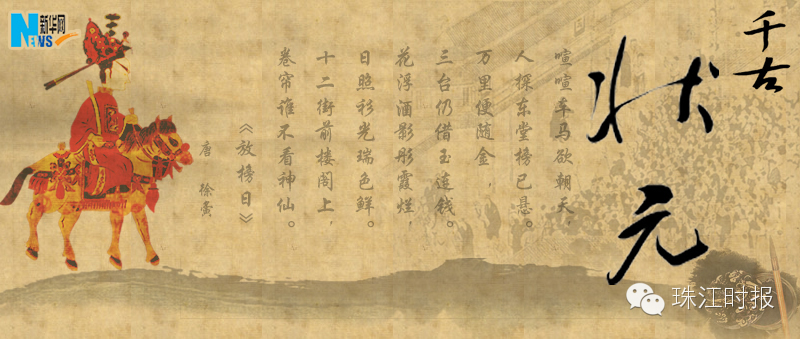 新华网
NEWS
千古
状元
喧喧车马欲朝天，
人探东堂榜已悬。
万里便随金，
三台仍借玉连钱。
花浮酒影彤霞烂，
日照衫光瑞色鲜。
十二街前楼阁上，
卷帘谁不看神仙。
《放榜日》
唐 徐夤
珠江时报